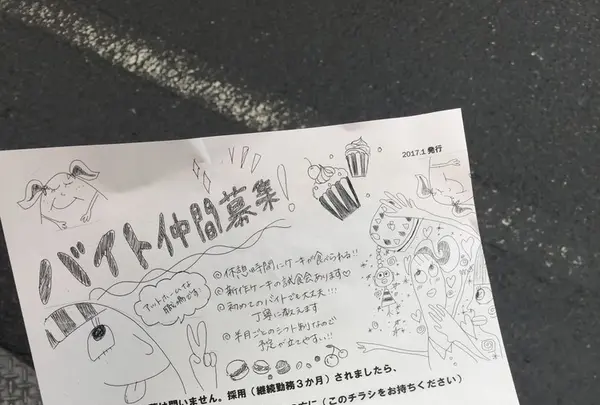 2017.1 発行
バイト仲間募集!
アットホームな
職場です!
◎休憩時間にケーキが食べられる!!
◎新作ケーキの試食会あります♡
◎初めてのバイトでも大丈夫!!!
丁寧に教えます
◎半月ごとのシフト制なので
予定が立てやすい!!
は問いません。採用(継続勤務3か月)されましたら、
に(このチラシをお持ちください)